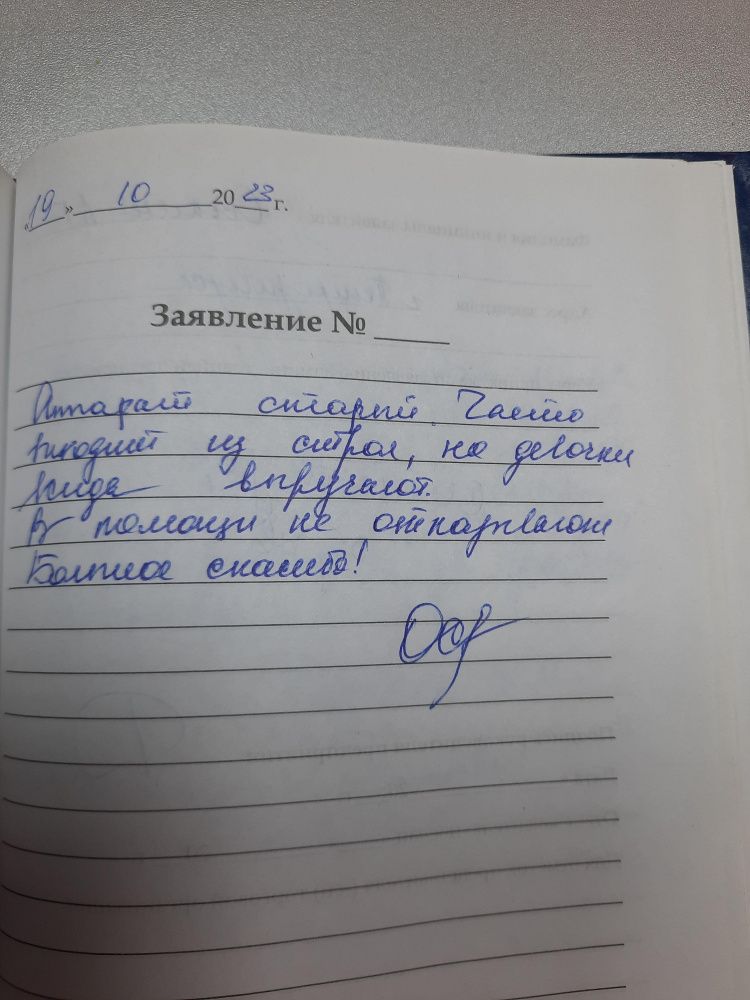 «19» 10 2023 г.
Заявление №
Аппарат старый. Часто
выходит из строя, но девочки
всегда выручают.
В помощи не отказывают
Большое спасибо!